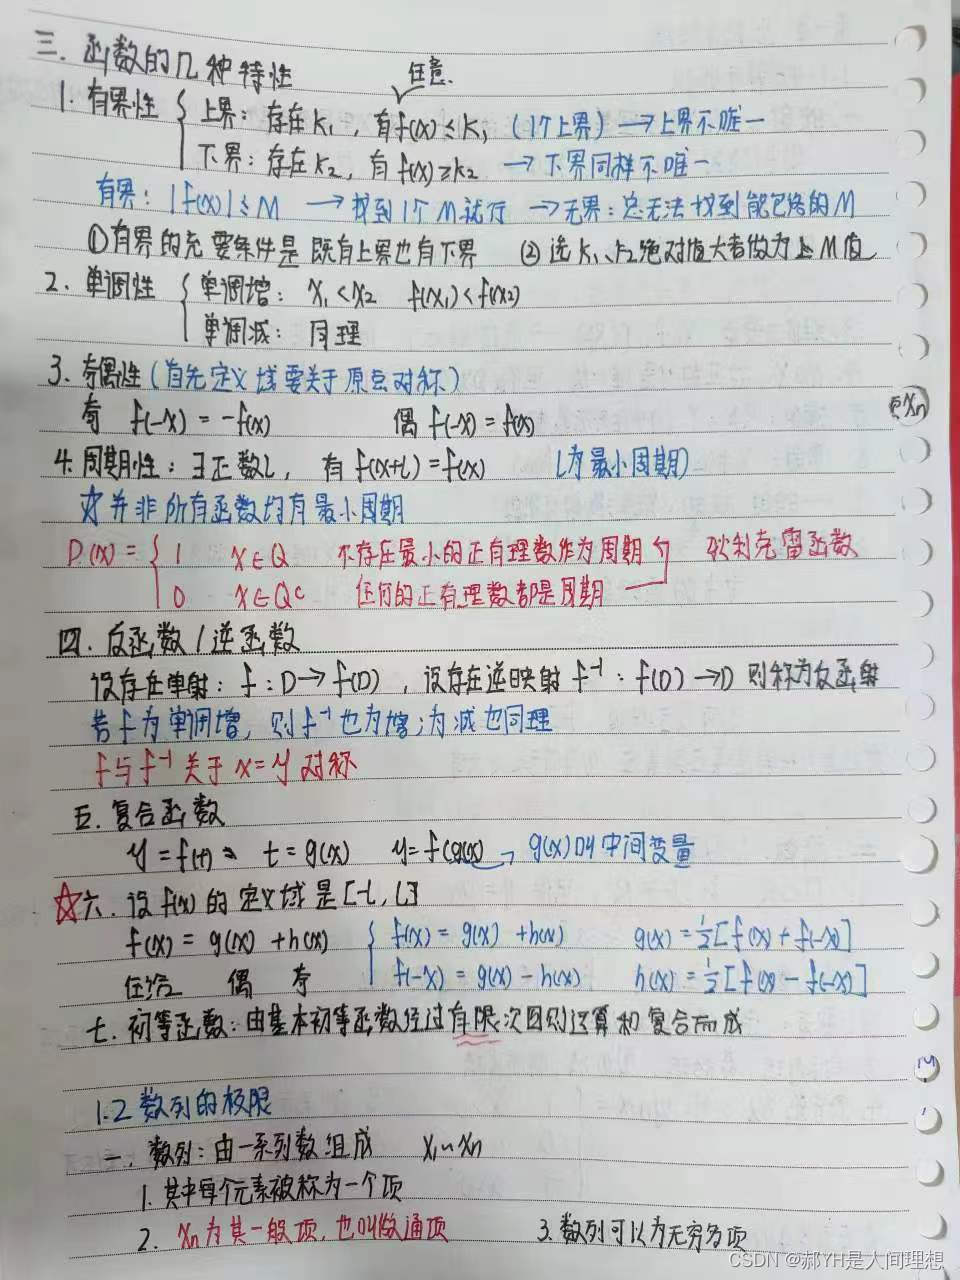 三.函数的几种特性
任意.
1.有界性 { 上界:存在K₁,有f(x)≤K₁ (1个上界)→上界不唯一
下界:存在K₂,有f(x)≥K₂ →下界同样不唯一
有界:|f(x)|≤M →找到1个M就行 →无界:总无法找到能包络的M
①有界的充要条件是既有上界也有下界 ②选K₁、K₂绝对值大者做为M值
2.单调性 { 单调增: x₁<x₂ f(x₁)<f(x₂)
单调减:同理
3.奇偶性(首先定义域要关于原点对称)
奇 f(-x)=-f(x) 偶 f(-x)=f(x)
xₙ
4.周期性:∃正数l,有f(x+l)=f(x) (l为最小周期)
☆并非所有函数均有最小周期
D(x)= { 1 x∈Q 不存在最小的正有理数作为周期 狄利克雷函数
0 x∈Qᶜ 任何的正有理数都是周期
四.反函数/逆函数
设存在单射:f:D→f(D),设存在逆映射f⁻¹:f(D)→D 则称为反函射
若f为单调增,则f⁻¹也为增;为减也同理
f与f⁻¹关于x=y对称
五.复合函数
y=f(t) t=g(x) y=f(g(x)) →g(x)叫中间变量
☆六.设f(x)的定义域是[-l,l]
f(x)=g(x)+h(x) { f(x)=g(x)+h(x) g(x)=½[f(x)+f(-x)]
任给 偶 奇 f(-x)=g(x)-h(x) h(x)=½[f(x)-f(-x)]
七.初等函数:由基本初等函数经过有限次四则运算和复合而成
1.2数列的极限
一.数列:由一系列数组成 x₁~xₙ
1.其中每个元素被称为一个项
2.xₙ为其一般项,也叫做通项 3.数列可以为无穷多项
CSDN @郝YH是人间理想